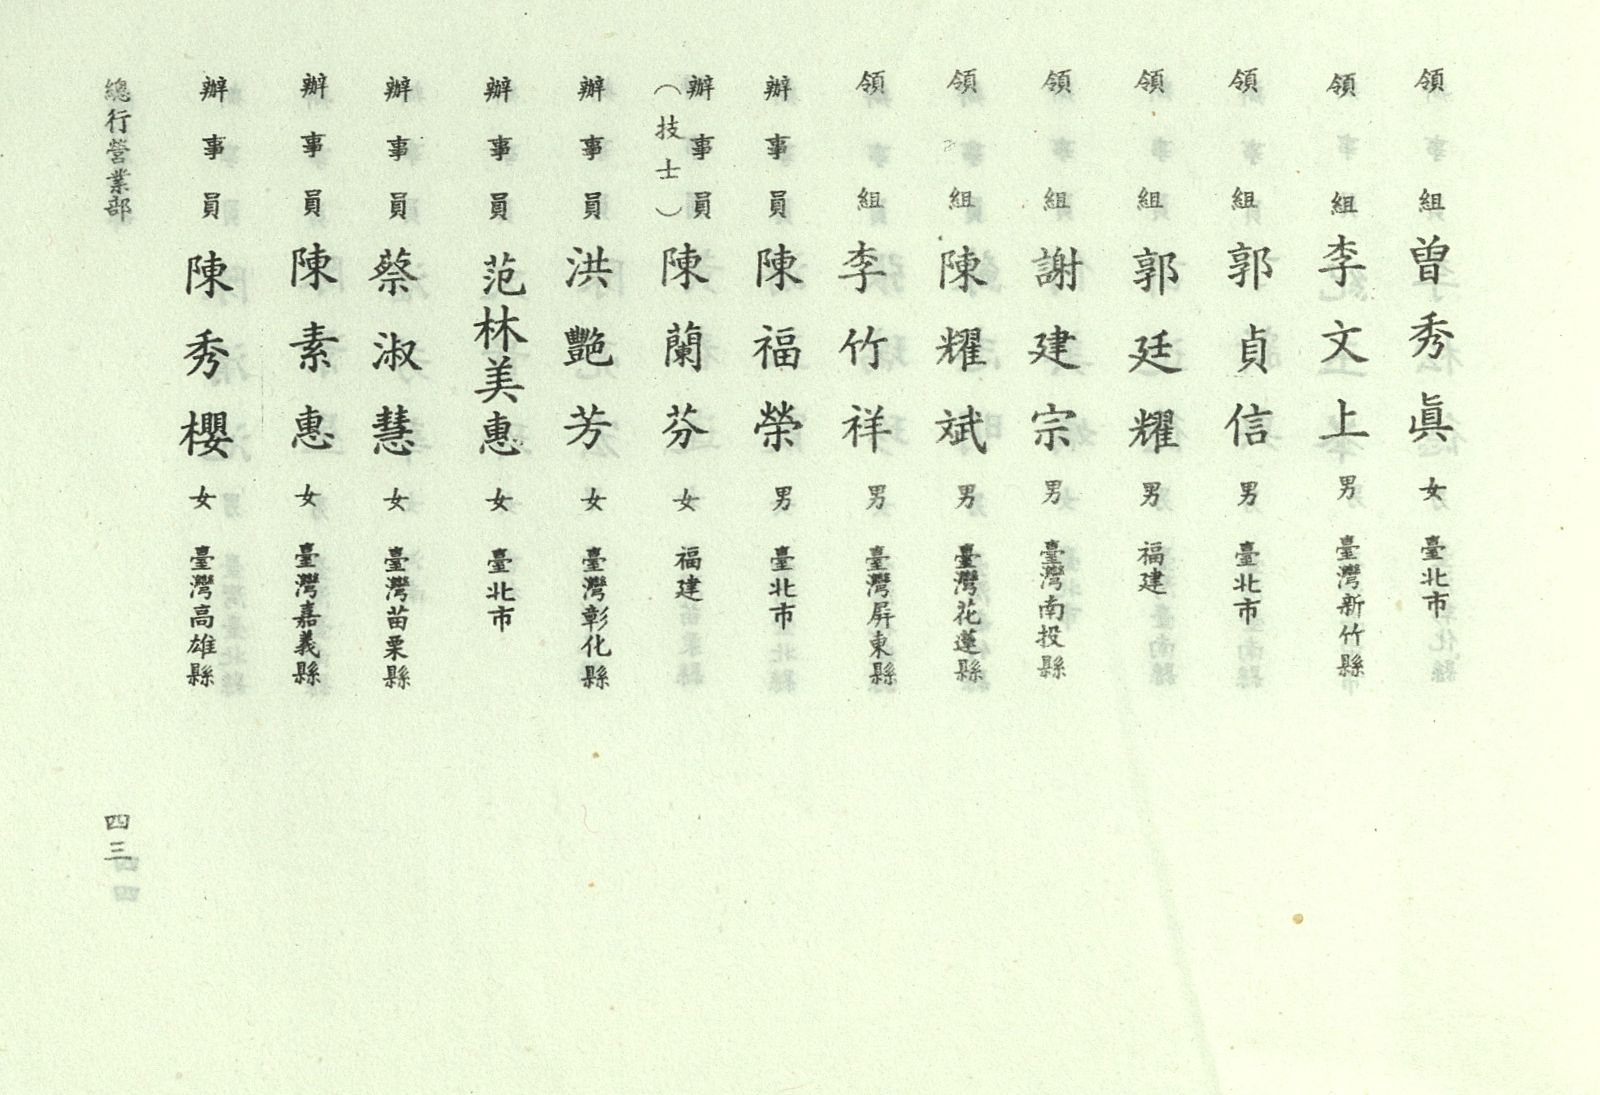 領組 曾秀眞 女 臺北市
領組 李文上 男 臺灣新竹縣
領組 郭貞信 男 臺北市
領組 郭廷耀 男 福建
領組 謝建宗 男 臺灣南投縣
領組 陳耀斌 男 臺灣花蓮縣
領組 李竹祥 男 臺灣屏東縣
辦事員 陳福榮 男 臺北市
辦事員 陳蘭芬 女 福建
（技士）
辦事員 洪艷芳 女 臺灣彰化縣
辦事員 范林美惠 女 臺北市
辦事員 蔡淑慧 女 臺灣苗栗縣
辦事員 陳素惠 女 臺灣嘉義縣
辦事員 陳秀櫻 女 臺灣高雄縣
總行營業部
四三